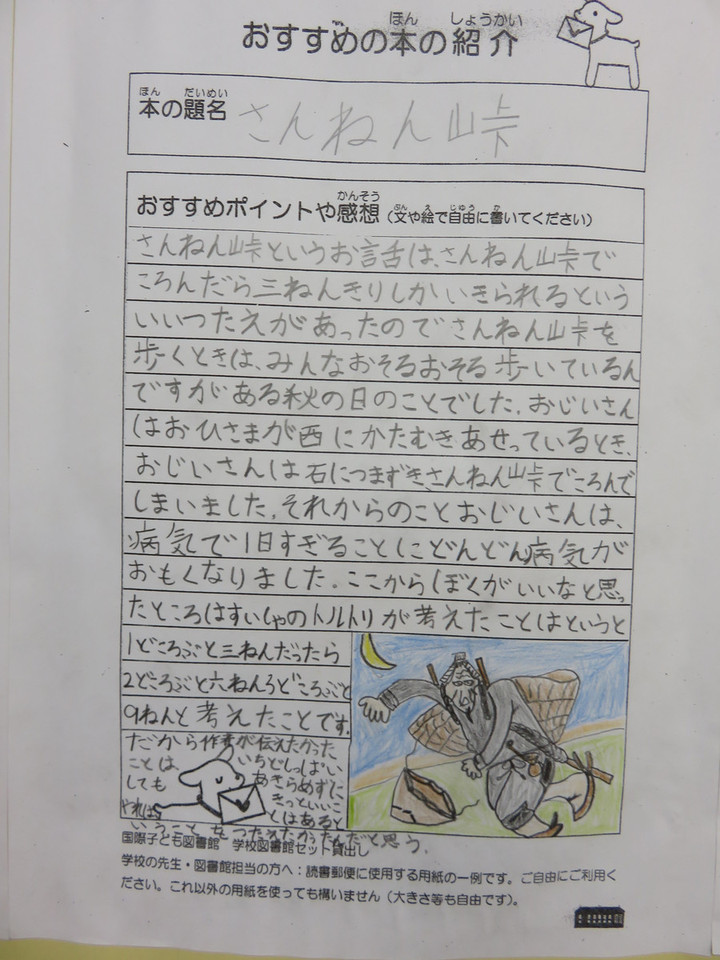 おすすめの本の紹介
本の題名 さんねん峠
おすすめポイントや感想(文や絵で自由に書いてください)
さんねん峠というお言舌は、さんねん峠で
ころんだら三ねんきりしかいきられるという
いいつたえがあったのでさんねん峠を
歩くときは、みんなおそるおそる歩いているん
ですがある秋の日のことでした。おじいさん
はおひさまが西にかたむきあせっているとき、
おじいさんは石につまずき、さんねん峠でころんで
しまいました。それからのことおじいさんは、
病気で1日すぎることにどんどん病気が
おもくなりました。ここからはぼくがいいなと思っ
たところはすいしゃのトルトリが考えたことはというと
1どころぶと三ねんだったら
2どころぶと六ねん3どころぶと
9ねんと考えたことです。
だから作者が伝えたかった
ことは いちどしっぱい
しても あきらめずに
やれば きっといいこ
とはあると
いうことをつたえたかったんだと思う。
国際子ども図書館 学校図書館セット貸出し
学校の先生・図書館担当の方へ:読書郵便に使用する用紙の一例です。ご自由にご利用く
ださい。これ以外の用紙を使っても構いません(大きさ等も自由です)。